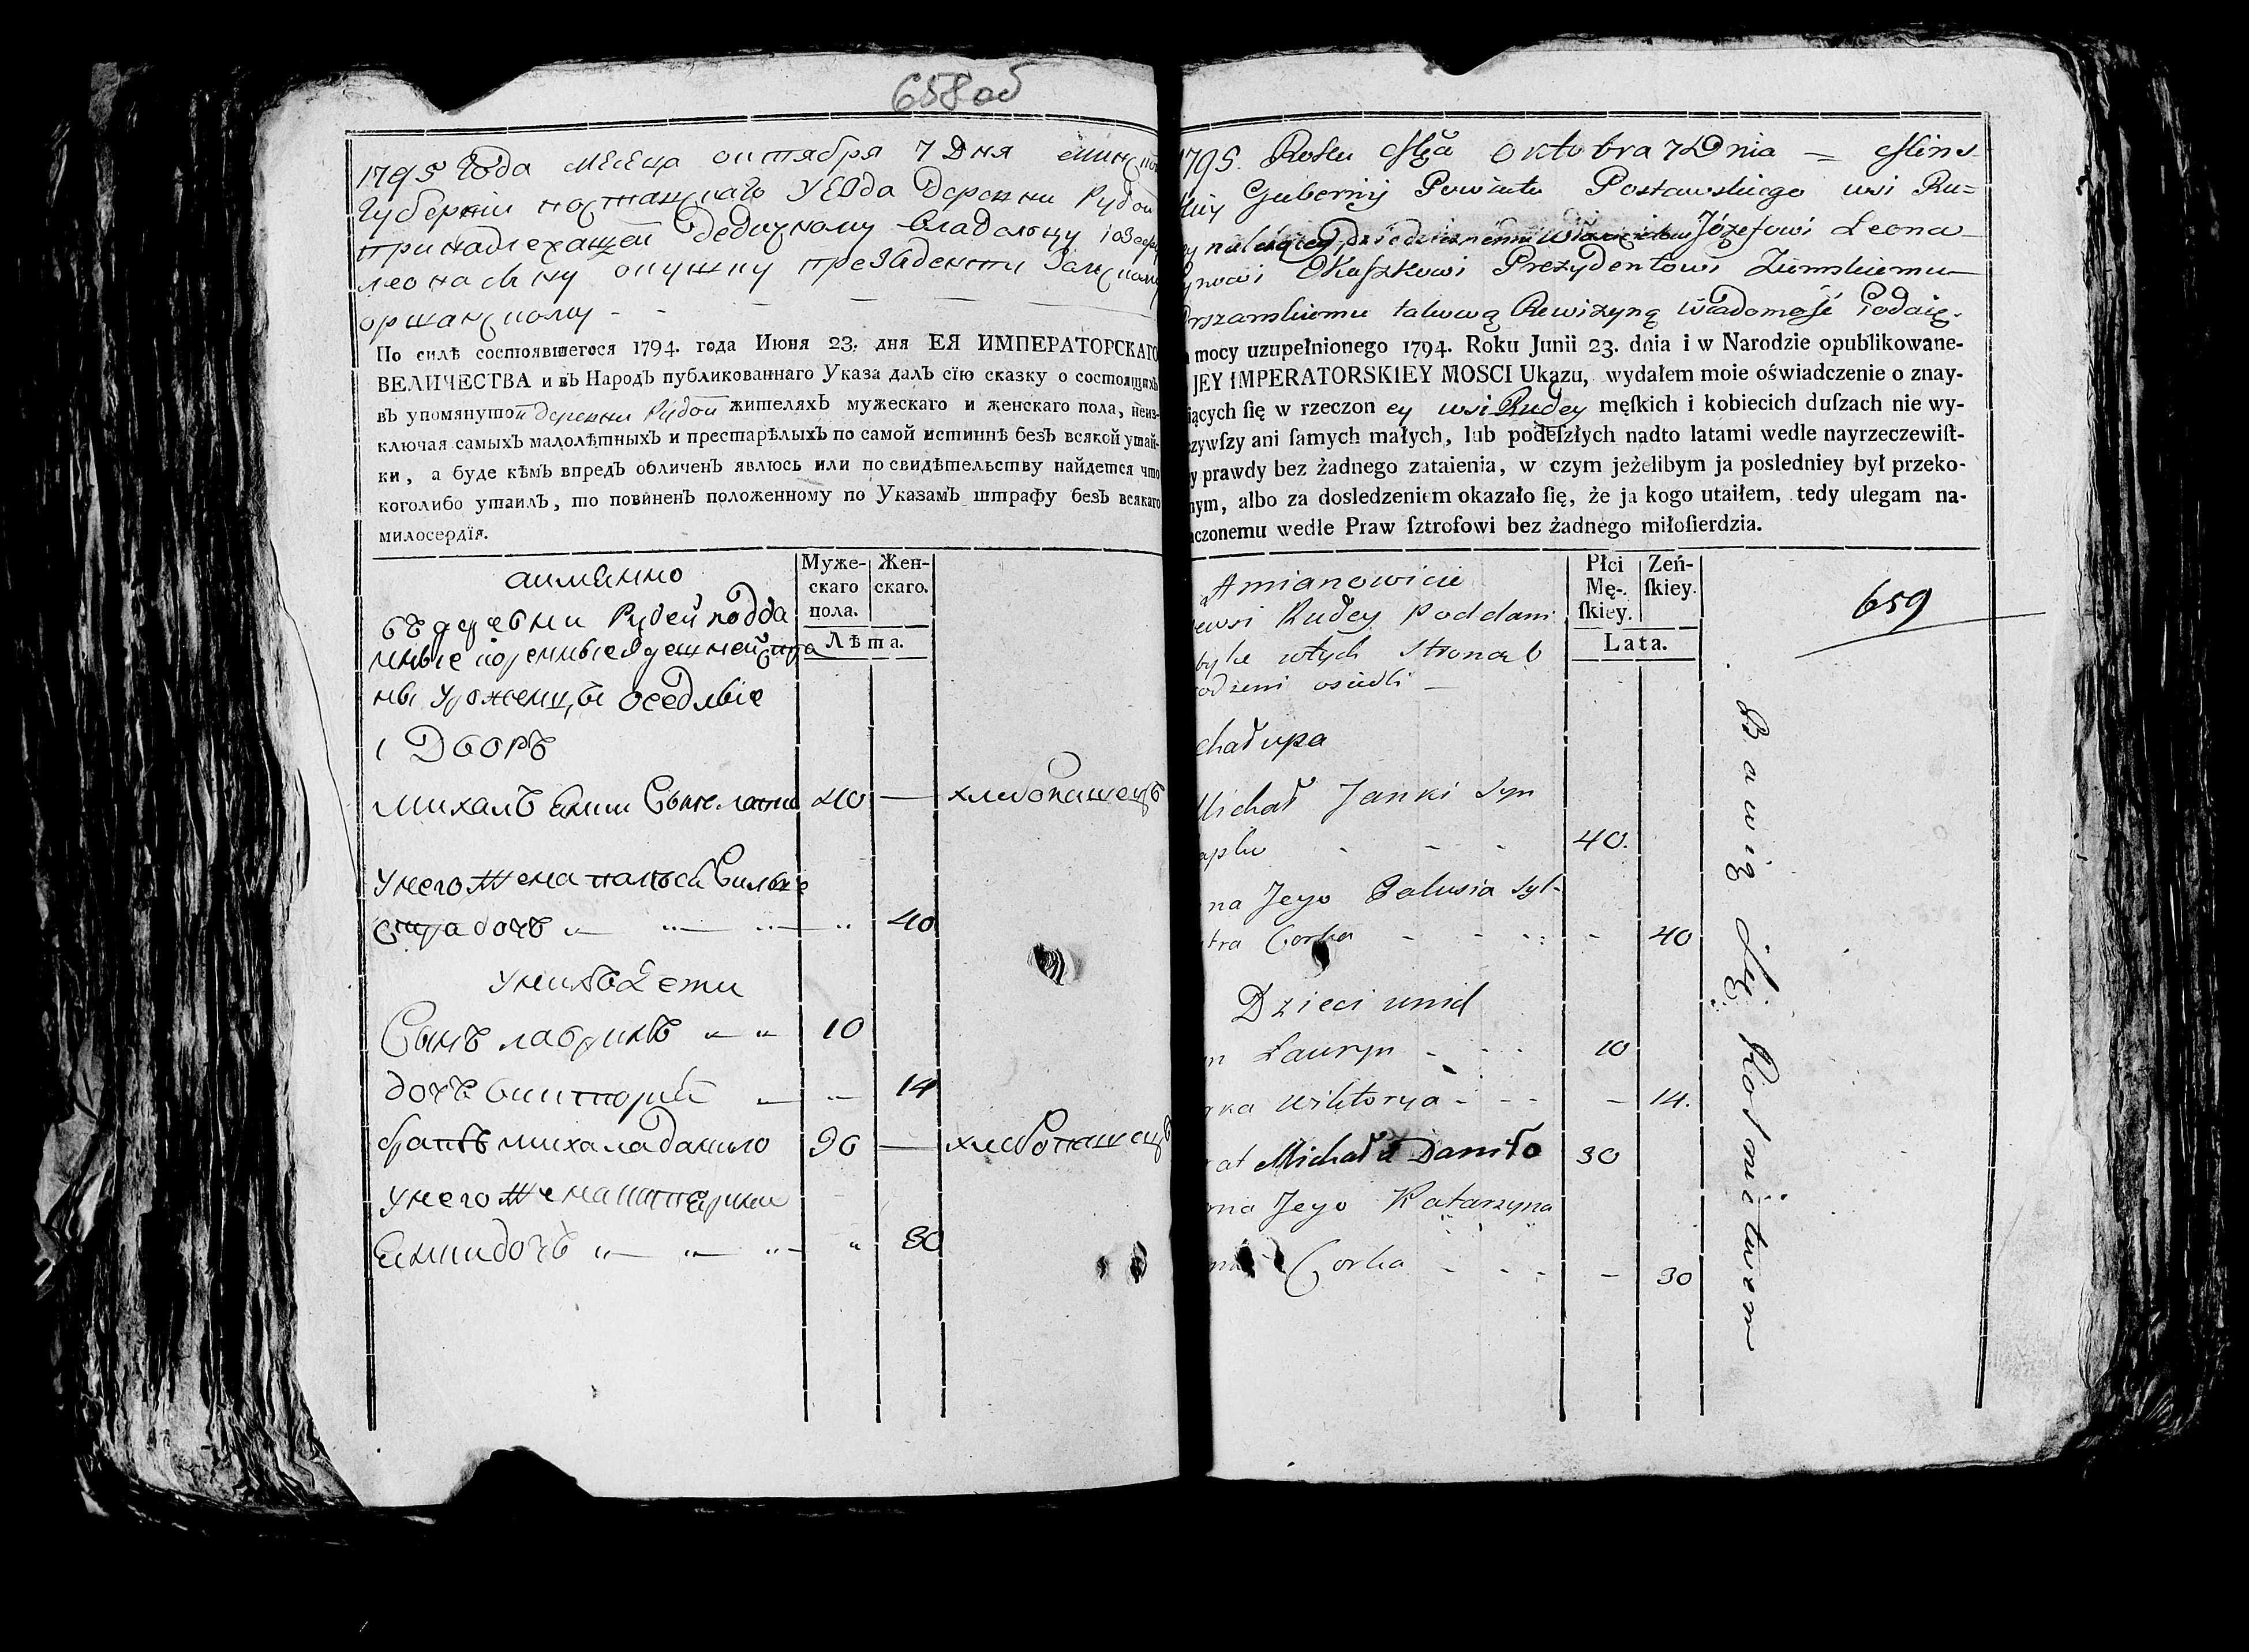 658 об
1795 Года месеца октября 7 Дня минско
Губерніи поставскаго уезда деревни Рудои
принадлежащеи дедичному владельцу іозефу
леонасыну окушку президенти земскому
оршанскому - -
По силѣ состоявшегося 1794. года Июня 23. дня ЕЯ ИМПЕРАТОРСКАГО
ВЕЛИЧЕСТВА и въ Народъ публикованнаго Указа далъ сїю сказку о состоящихъ
въ упомянутой деревни Рудои жителяхъ мужескаго и женскаго пола, неиз-
ключая самыхъ малолѣтныхъ и престарѣлыхъ по самой истиннѣ безъ всякой утай-
ки, а буде кѣмъ впредъ обличенъ явлюсь или по свидѣтельству найдется что
коголибо утаилъ, то повиненъ положенному по Указамъ штрафу безъ всякаго
милосердїя.
Муже-
скаго
пола.
Жен-
скаго.
Лѣта.
аимянно
въ деревни Рудей подда
нные коренные здешней стра
ны уроженцы оседлые
1 Дворъ
михалъ янки сынъ 40 — хлебопашецъ
у него жена палюся сильве
стра дочь 40
у нихъ дети
Сынъ лавринъ 10
дочь викторія 14
братъ михала данило 30 — хлебопашецъ
у него жена катерина
дочь 30
1795. Roku Mca Oktobra 7 Dnia = Mins-
kiey Gubernij Powiatu Postawskiego wsi Ru=
ey należącey dziedzicznemu Józefowi Leona_
ynowi Okuszkowi Prezydentowi Ziemskiemu
rszanskiemu takową Rewizyną Wiadomość Podaię.
mocy uzupełnionego 1794. Roku Junii 23. dnia i w Narodzie opublikowane-
JEY IMPERATORSKIEY MOSCI Ukazu, wydałem moie oświadczenie o znay-
iących ſię w rzeczon ey wsi Rudey męſkich i kobiecich duſzach nie wy-
zywſzy ani ſamych małych, lub podeſzłych nadto latami wedle nayrzeczewiſt-
y prawdy bez żadnego zataienia, w czym jeżelibym ja posledniey był przeko-
nym, albo za dosledzeniem okazało ſię, że ja kogo utaiłem, tedy ulegam na-
aczonemu wedle Praw ſztrofowi bez żadnego miłoſierdzia.
Płci
Mę-
ſkiey.
Zeń-
ſkiey.
Lata.
659
Amianowicie
ewsi Rudey Poddani
byłe wtych Stronach
odzeni osiedli —
chałupa
Michał Janki Syn
40.
na Jego Palusia Syl-
stra Corka 40
Dzieci unich
n Lauryn 10
rka Wiktorya 14.
rat Michała Daniło 30
ona Jego Katarzyna
Corka 30
Bawią Się Rolnictwem